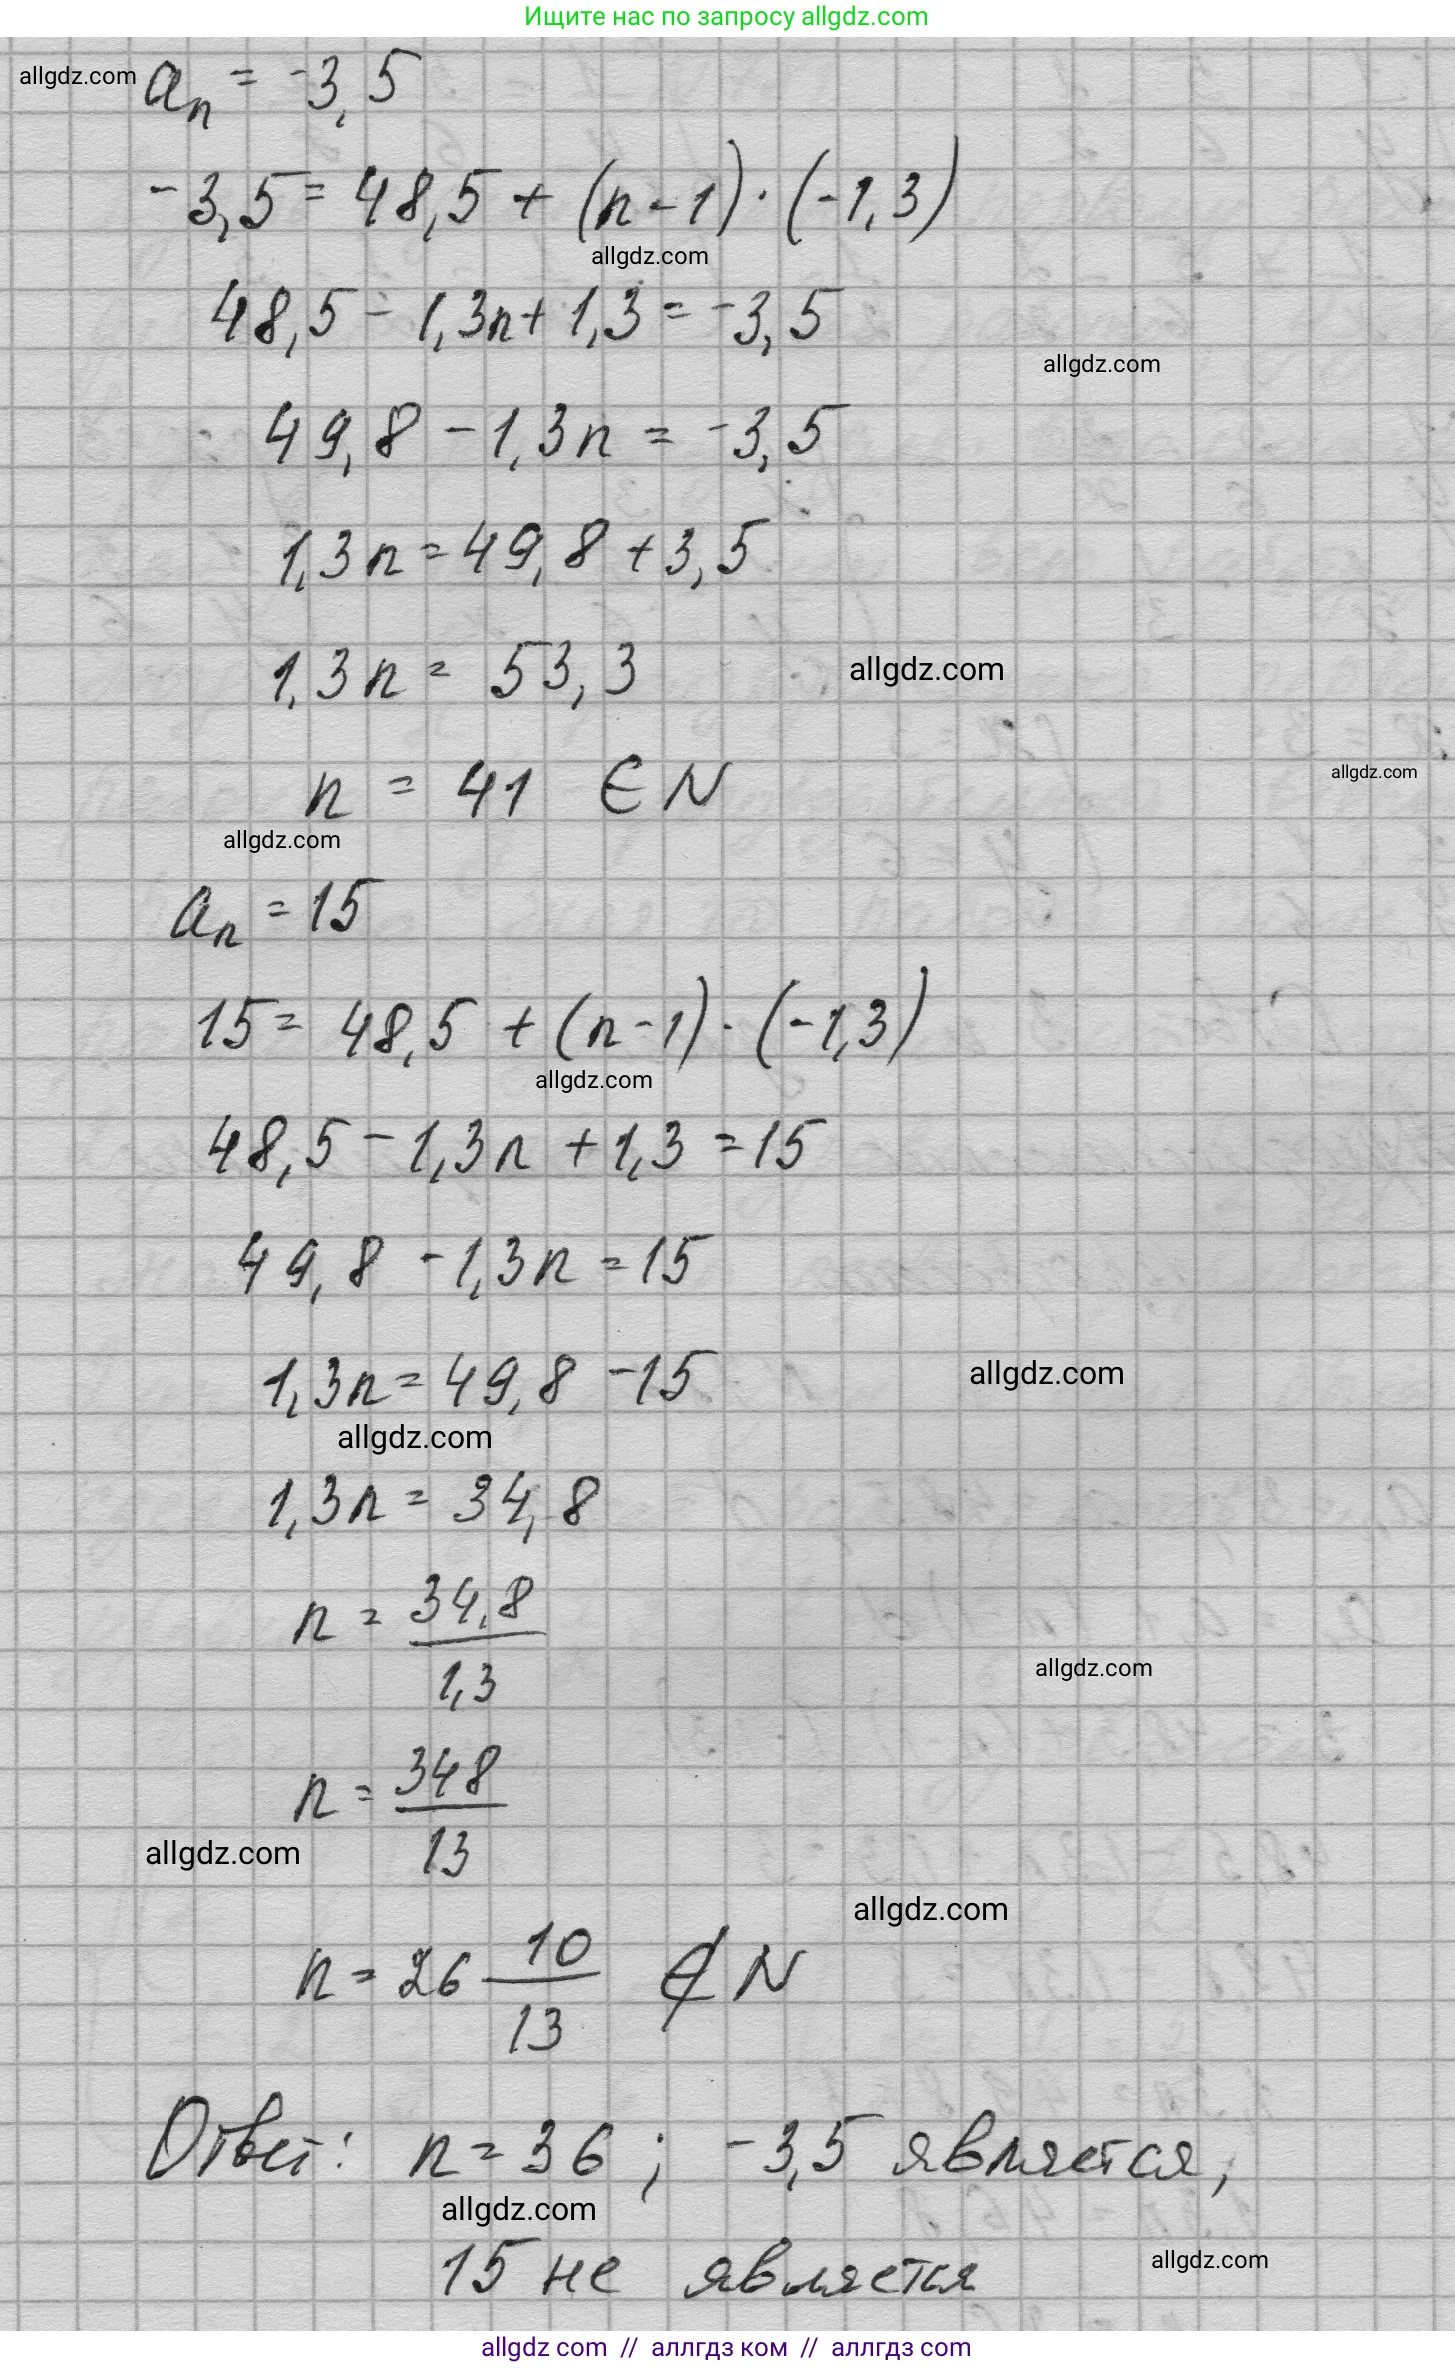 Ищите нас по запросу allgdz.com
allgdz.com
aₙ = -3,5
-3,5 = 48,5 + (n-1)·(-1,3)
allgdz.com
48,5 - 1,3n + 1,3 = -3,5
allgdz.com
49,8 - 1,3n = -3,5
1,3n = 49,8 + 3,5
1,3n = 53,3
allgdz.com
n = 41 ∈ N
allgdz.com
allgdz.com
aₙ = 15
15 = 48,5 + (n-1)·(-1,3)
allgdz.com
48,5 - 1,3n + 1,3 = 15
49,8 - 1,3n = 15
1,3n = 49,8 - 15
allgdz.com
allgdz.com
1,3n = 34,8
n = 34,8/1,3
allgdz.com
n = 348/13
allgdz.com
allgdz.com
n = 26 10/13 ∉ N
Ответ: n = 36; -3,5 является,
allgdz.com
15 не является
allgdz.com
allgdz.com // аллгдз ком // аллгдз.com